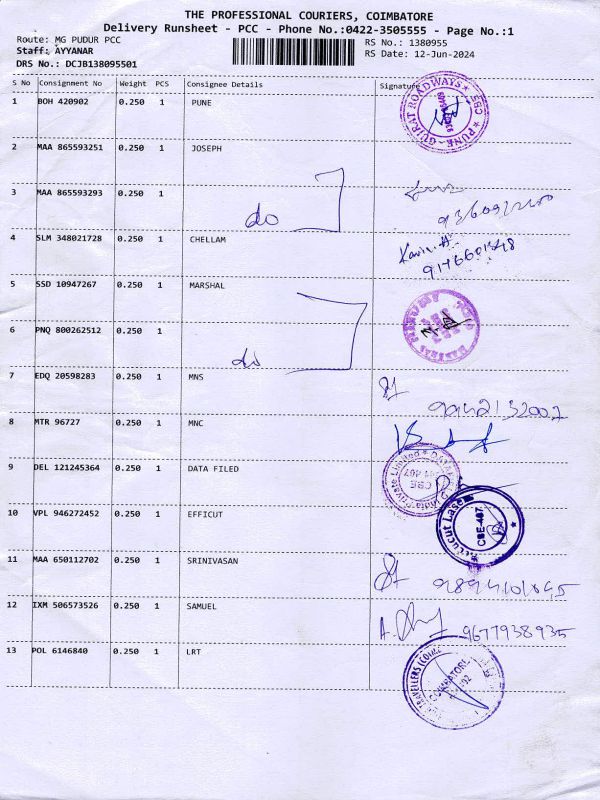 THE PROFESSIONAL COURIERS, COIMBATORE
Delivery Runsheet - PCC - Phone No.:0422-3505555 - Page No.:1
Route: MG PUDUR PCC
RS No.: 1380955
Staff: AYYANAR
RS Date: 12-Jun-2024
DRS No.: DCJB138095501
S No Consignment No Weight PCS Consignee Details Signature
1 BOH 420902 0.250 1 PUNE
GUJRAT ROADWAYS * CBE * PUNE
2 MAA 865593251 0.250 1 JOSEPH
3 MAA 865593293 0.250 1 do
4 SLM 348021728 0.250 1 CHELLAM
9176601348
5 SSD 10947267 0.250 1 MARSHAL
6 PNQ 800262512 0.250 1 do
7 EDQ 20598283 0.250 1 MNS
8 MTR 96727 0.250 1 MNC
9 DEL 121245364 0.250 1 DATA FILED
India Private Limited *
CBE
10 VPL 946272452 0.250 1 EFFICUT
CBE-407
11 MAA 650112702 0.250 1 SRINIVASAN
12 IXM 506573526 0.250 1 SAMUEL
9677938935
13 POL 6146840 0.250 1 LRT